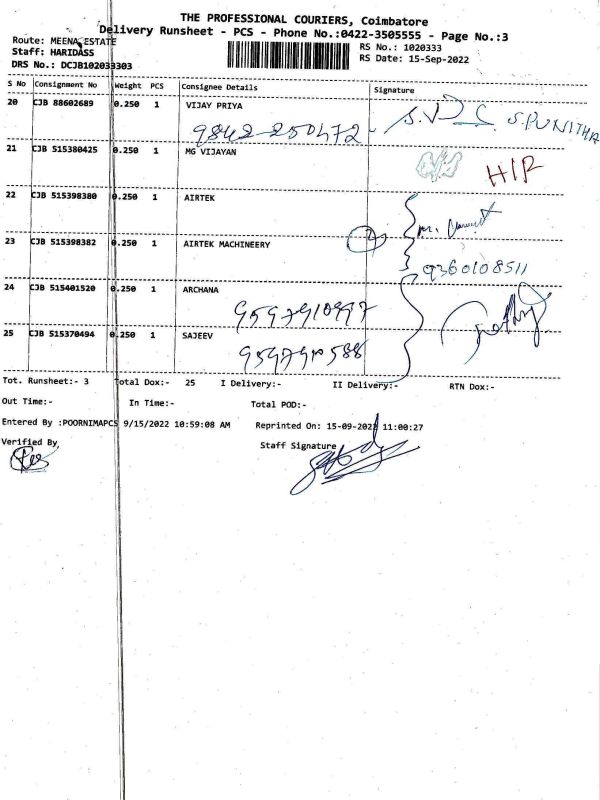 THE PROFESSIONAL COURIERS, Coimbatore
Delivery Runsheet - PCS - Phone No.:0422-3505555 - Page No.:3
Route: MEENA ESTATE
Staff: HARIDASS
DRS No.: DCJB102033303
RS No.: 1020333
RS Date: 15-Sep-2022
S No Consignment No Weight PCS Consignee Details Signature
20 CJB 88602689 0.250 1 VIJAY PRIYA
9842-250472 S.PUNITHA
21 CJB 515380425 0.250 1 MG VIJAYAN
H/R
22 CJB 515398380 0.250 1 AIRTEK
23 CJB 515398382 0.250 1 AIRTEK MACHINEERY
9360108511
24 CJB 515401520 0.250 1 ARCHANA
9597910997
25 CJB 515370494 0.250 1 SAJEEV
9597910588
Tot. Runsheet:- 3 Total Dox:- 25 I Delivery:- II Delivery:- RTN Dox:-
Out Time:- In Time:- Total POD:-
Entered By :POORNIMAPCS 9/15/2022 10:59:08 AM Reprinted On: 15-09-2022 11:00:27
Verified By Staff Signature